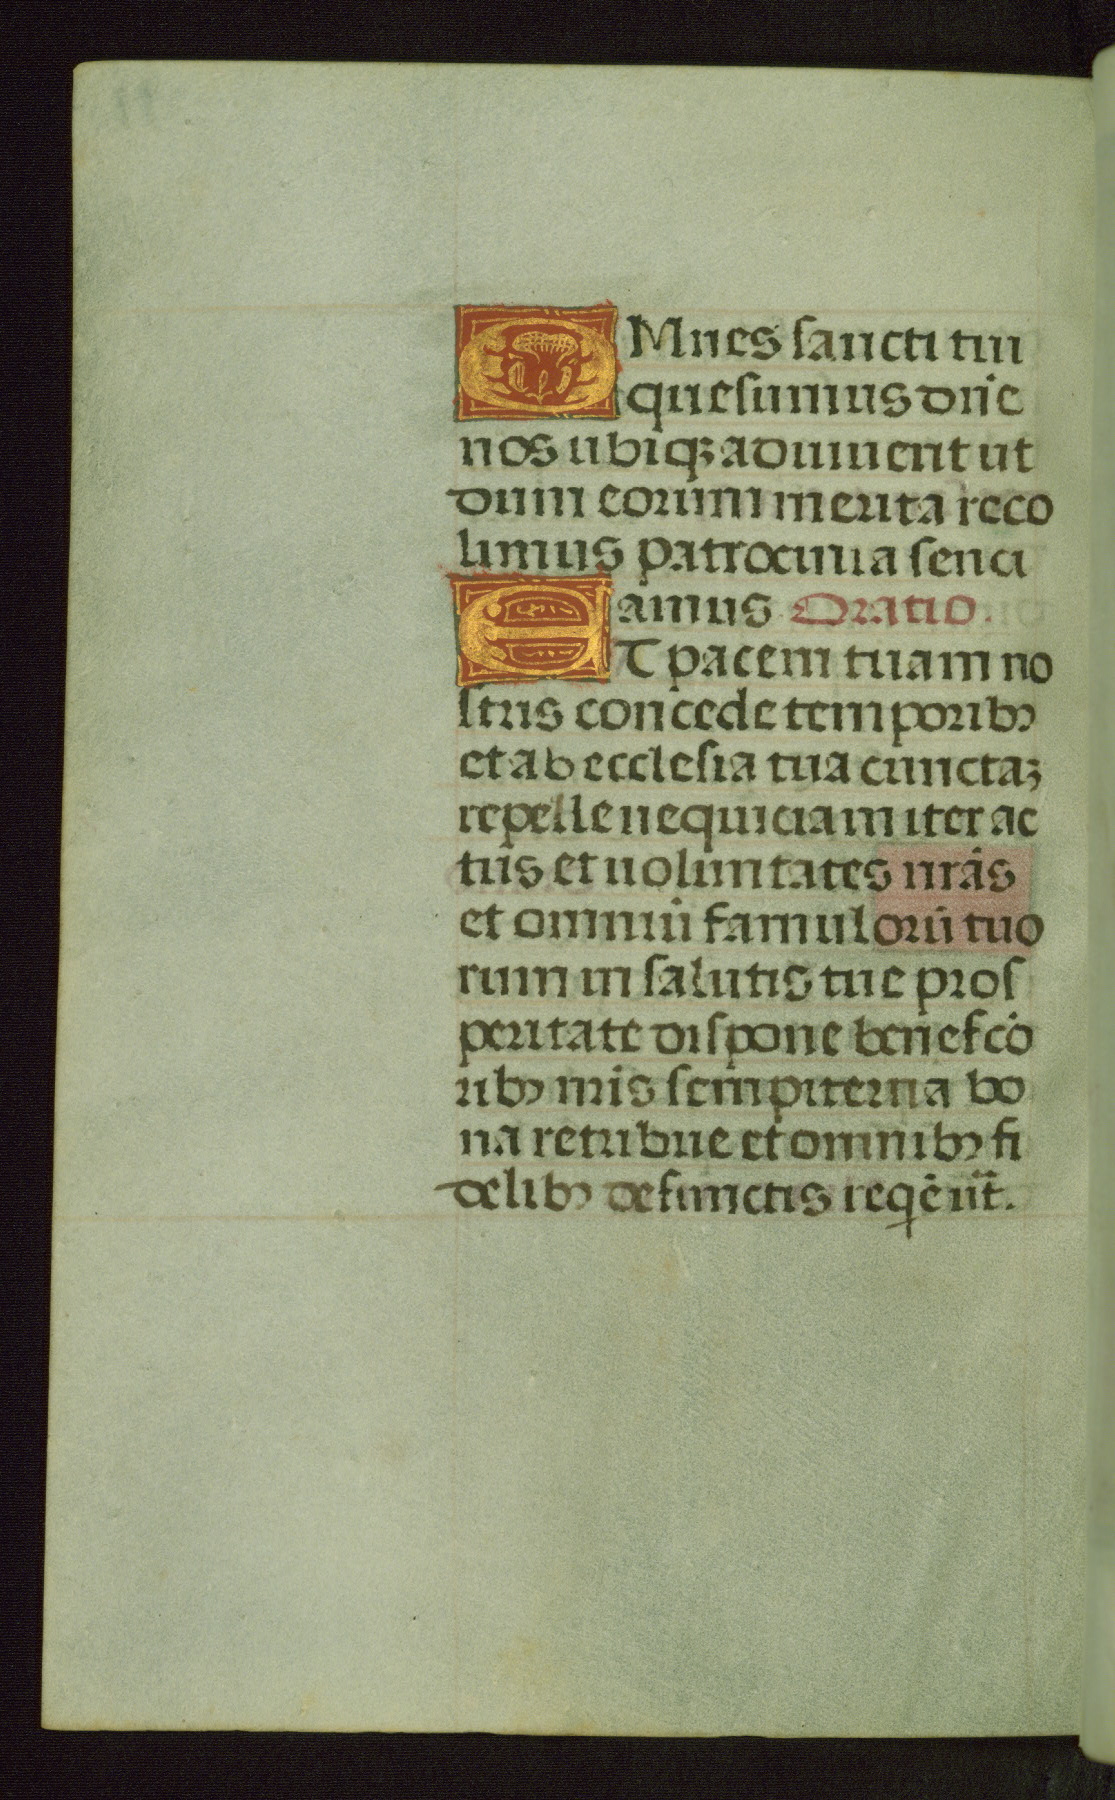 OMnes sancti tui
quesumus dn̄e
nos ubiqꝫ adiuuent ut
dum eorum merita reco
limus patrocinia senci
amus Oratio.
ET pacem tuam no
stris concede temporibꝫ
et ab ecclesia tua cunctaꝫ
repelle nequiciam iter ac
tus et uoluntates nr̄as
et omniū famulorū tuo
rum in salutis tue pros
peritate dispone benefcō
ribꝫ nr̄is sempiterna bo
na retribue et omnibꝫ fi
delibꝫ defunctis reqē ūt̄.